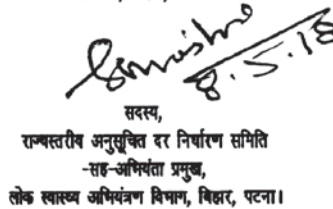 8.5.18
सदस्य,
राज्यस्तरीय अनुसूचित दर निर्धारण समिति
-सह-अभियंता प्रमुख,
लोक स्वास्थ्य अभियंत्रण विभाग, बिहार, पटना।